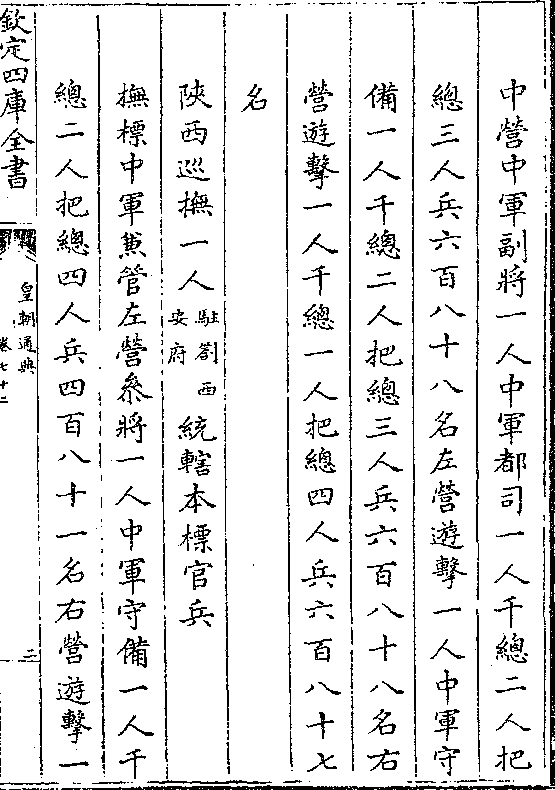 中營中軍副將一人中軍都司一人千總二人把
總三人兵六百八十八名左營遊擊一人中軍守
備一人千總二人把總三人兵六百八十八名右
營遊擊一人千總一人把總四人兵六百八十七
名
陝西巡撫一人駐劄西安府統轄本標官兵
撫標中軍兼管左營叅將一人中軍守備一人千
總二人把總四人兵四百八十一名右營遊擊一
欽定四庫全書
皇朝通典
卷七十二
二